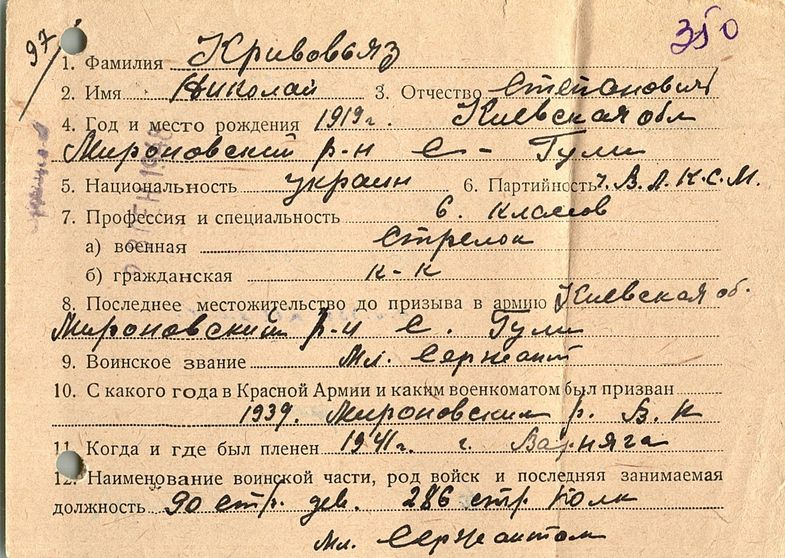 97
350
1. Фамилия Кривовьяз
2. Имя Николай 3. Отчество Степанович
4. Год и место рождения 1919г. Киевская обл
Мироновский р-н с - Гули
5. Национальность украин 6. Партийность ч. В.Л.К.С.М.
7. Профессия и специальность 6. классов
а) военная стрелок
б) гражданская к-к
8. Последнее местожительство до призыва в армию Киевская об.
Мироновский р-н с. Гули
9. Воинское звание Мл. Сержант
10. С какого года в Красной Армии и каким военкоматом был призван
1939. Мироновским р. В. К
11. Когда и где был пленен 1941г. г.
12. Наименование воинской части, род войск и последняя занимаемая
должность 90 стр. див. 286 стр полк
Мл. Сержантом